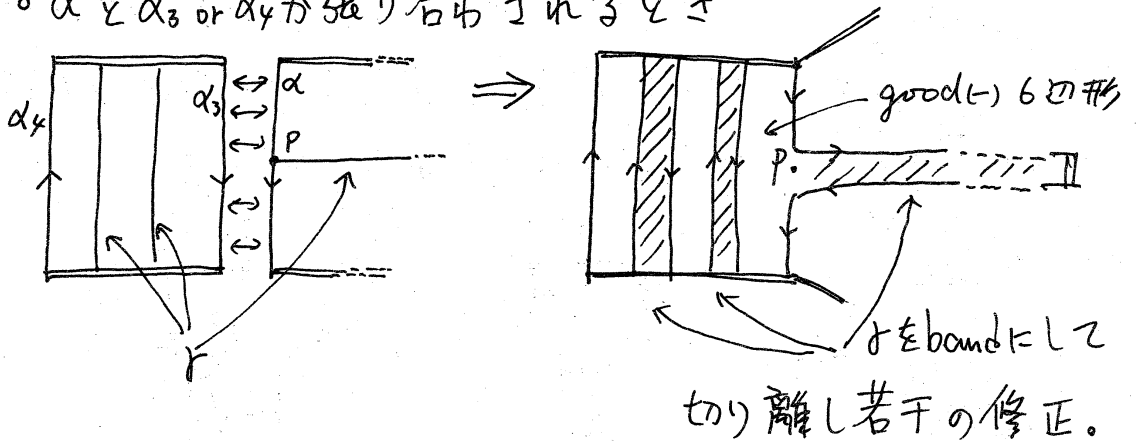 。αとα₃ or α₄が張り合わされるとき
α₄
α₃
α
P
γ
⇒
good(-) 6辺形
P.
γをbandにして
切り離し若干の修正。